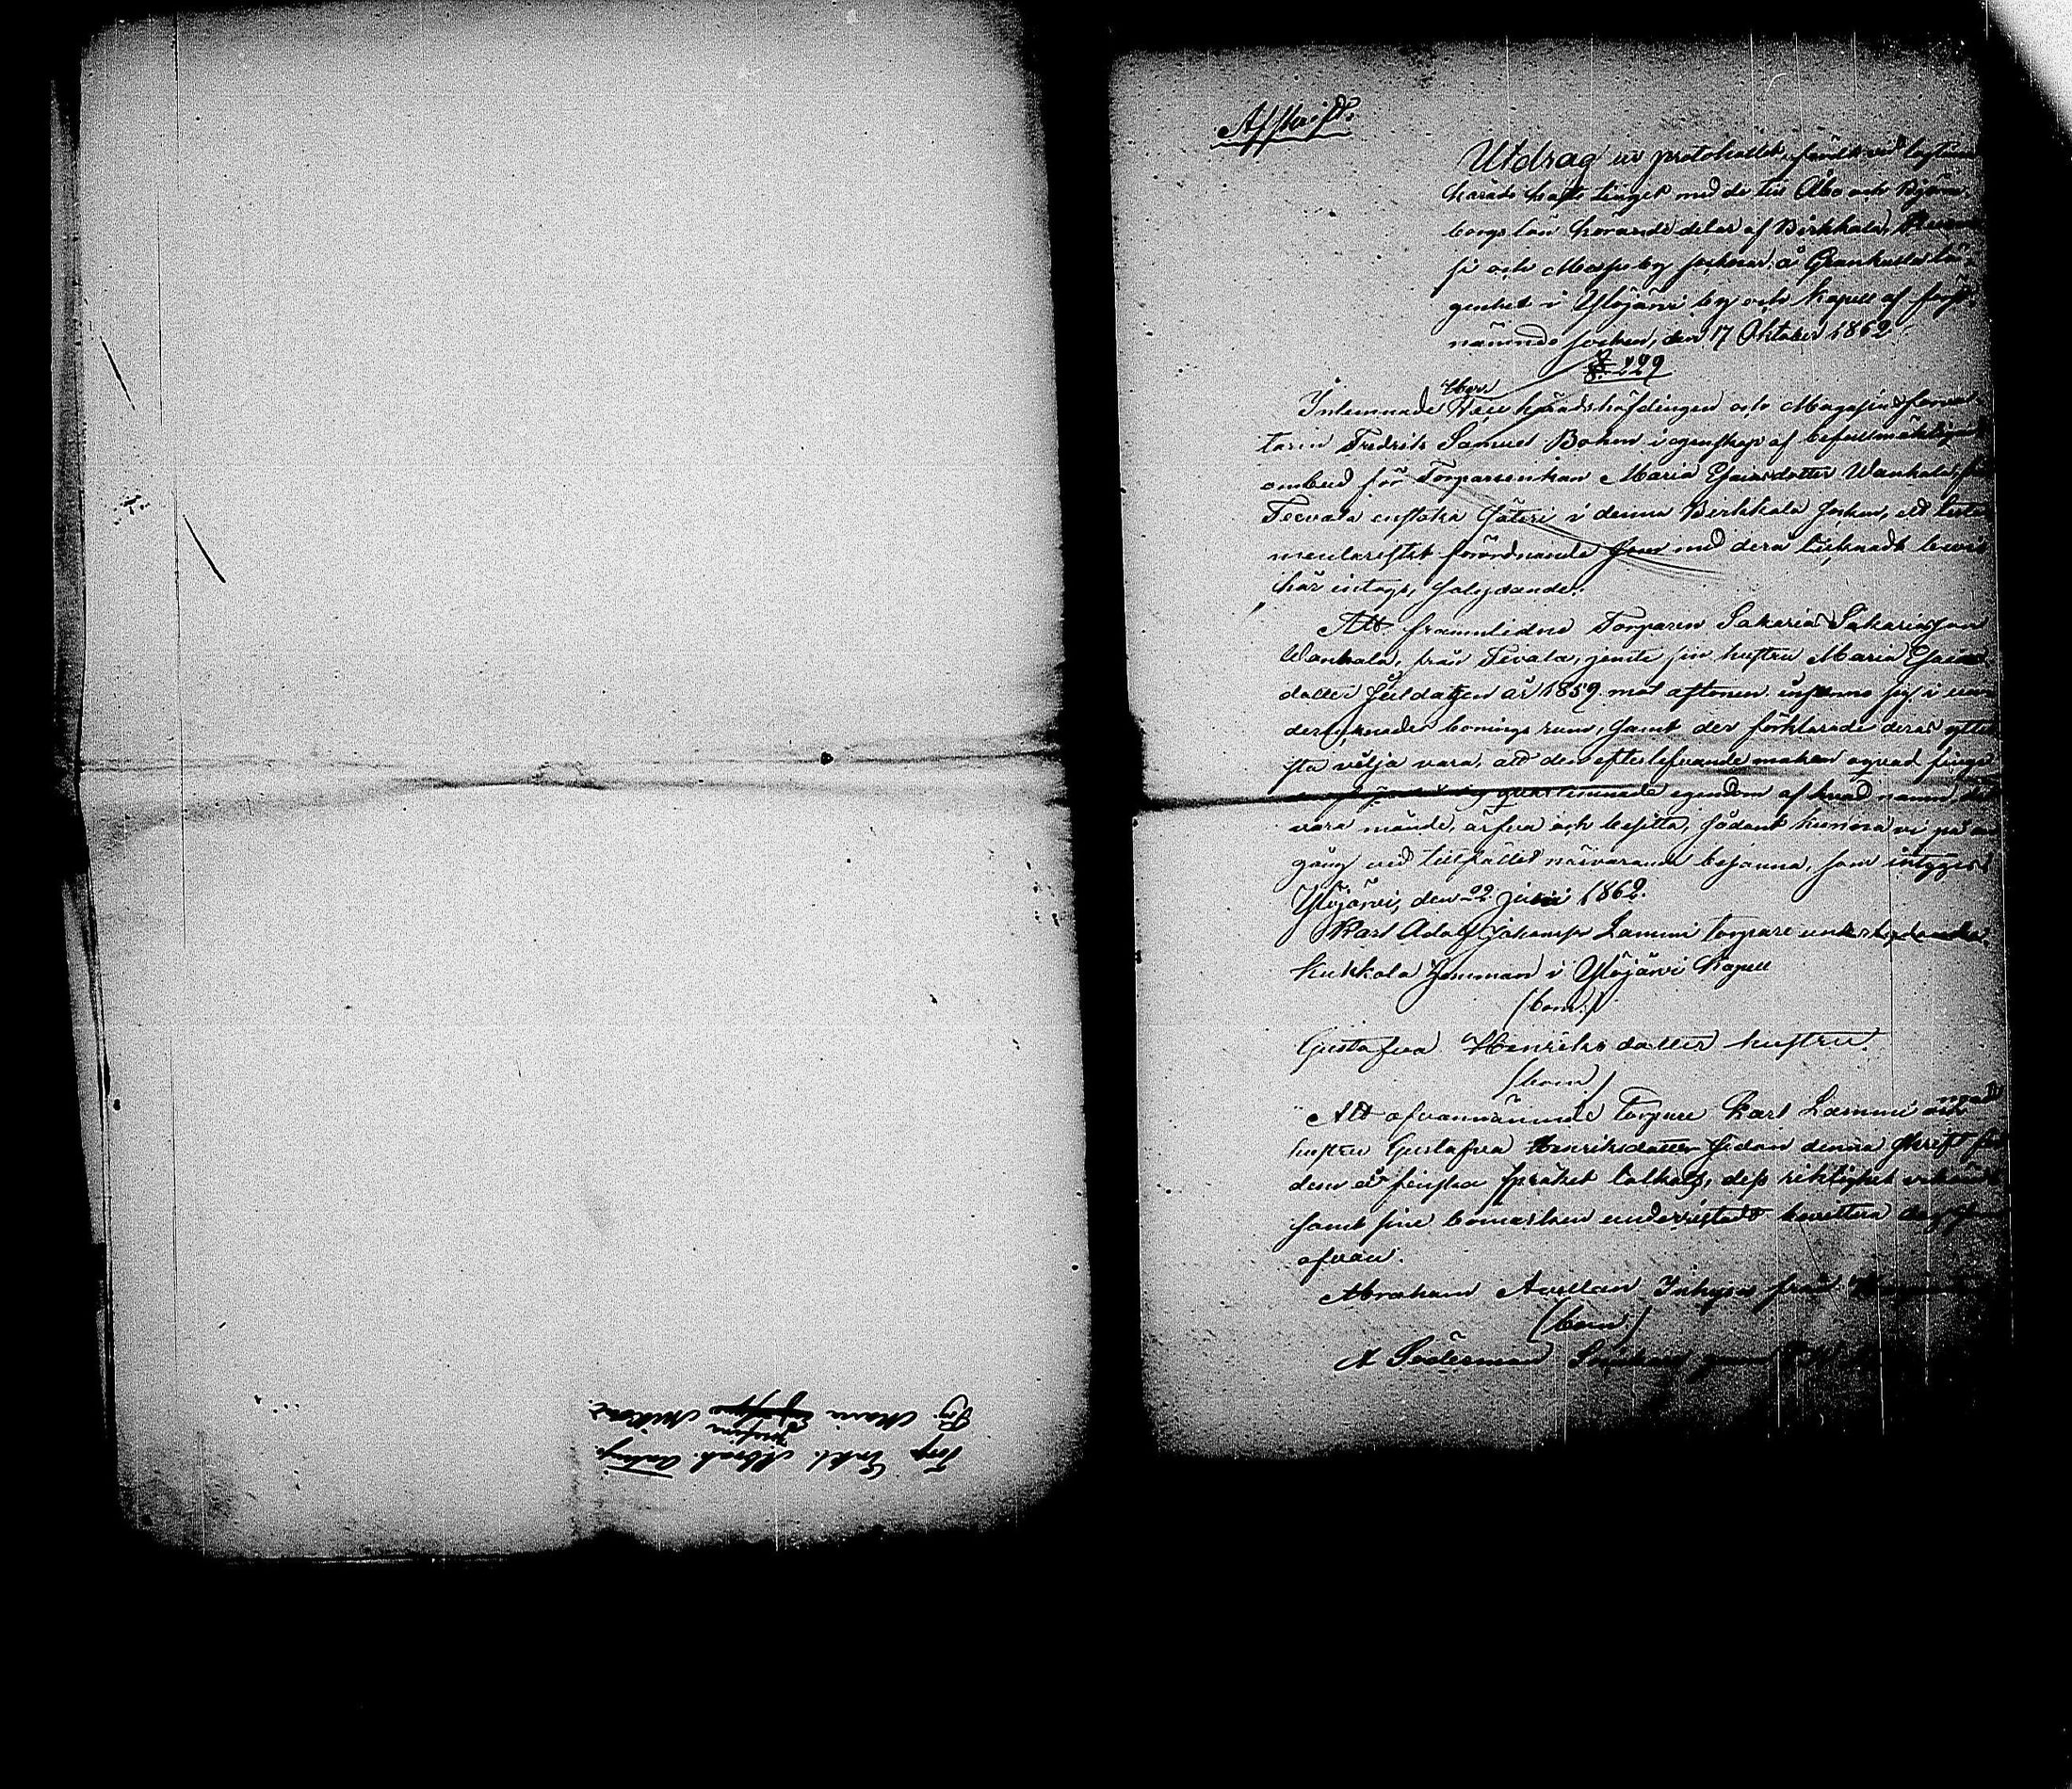 Afskrift.
Utdrag ur protokollet, fördt vid lagtima
härads höste tinget med de till Åbo och Björne
borgs län hörande delar af Birkkala,
si och Messuby socknar, å Grankulla lä-
genhet i Ylöjärvi by och kapell af först
nämnde socken, den 17 Oktober 1862.
§. 229
Inlemnade Vice Häradshöfdingen och Magasinsförval
taren Fredrik Samuel Bohm i egenskap af befullmäktigad
ombud för Torparenkan Maria Esaiasdotter Wanhala från
Teevala enstaka säteri i denna Birkkala socken, ett testa
mentariskt förordnande som med derå tecknadt bevis
här intogs, så lydande:
Att framlidne Torparen Sakarias Sakariasson
Wanhala, från Tevala, jemte sin hustru Maria Esaias
dotter Juldagen år 1859 mot aftonen infunno sig i un
dertecknades bonings rum, samt der förklarade deras ytter
sta vilja vara, att den efterlefvande maken egnad finge
qvarlemnade egendom af hvad namn det
vara månde, ärfva och besitta, sådant kunna vi på en
gång vid tillfället närvarande besanna, som intygges
Ylöjärvi, den 22 juni 1862.
Karl Adolf Johansson Lammi torpare underlydande
Kukkola hemman i Ylöjärvi Kapell
(bom.)
Gustafva Henriksdotter hustru.
(bom.)
Att ofvannämnde torpare Karl Lammi och
hustru Gustafva Henriksdotter sedan denna skrift för
dem på finska språket tolkats, dess riktighet erkänt
samt sine bomärken underristadt bevittna dag som
ofvan.
Abraham Avellan Inhyses från
(bom.)
A Söderman
Torp. Enkl. Abrah. Antinp.
Josefina
Pig. Maria Mikkos.